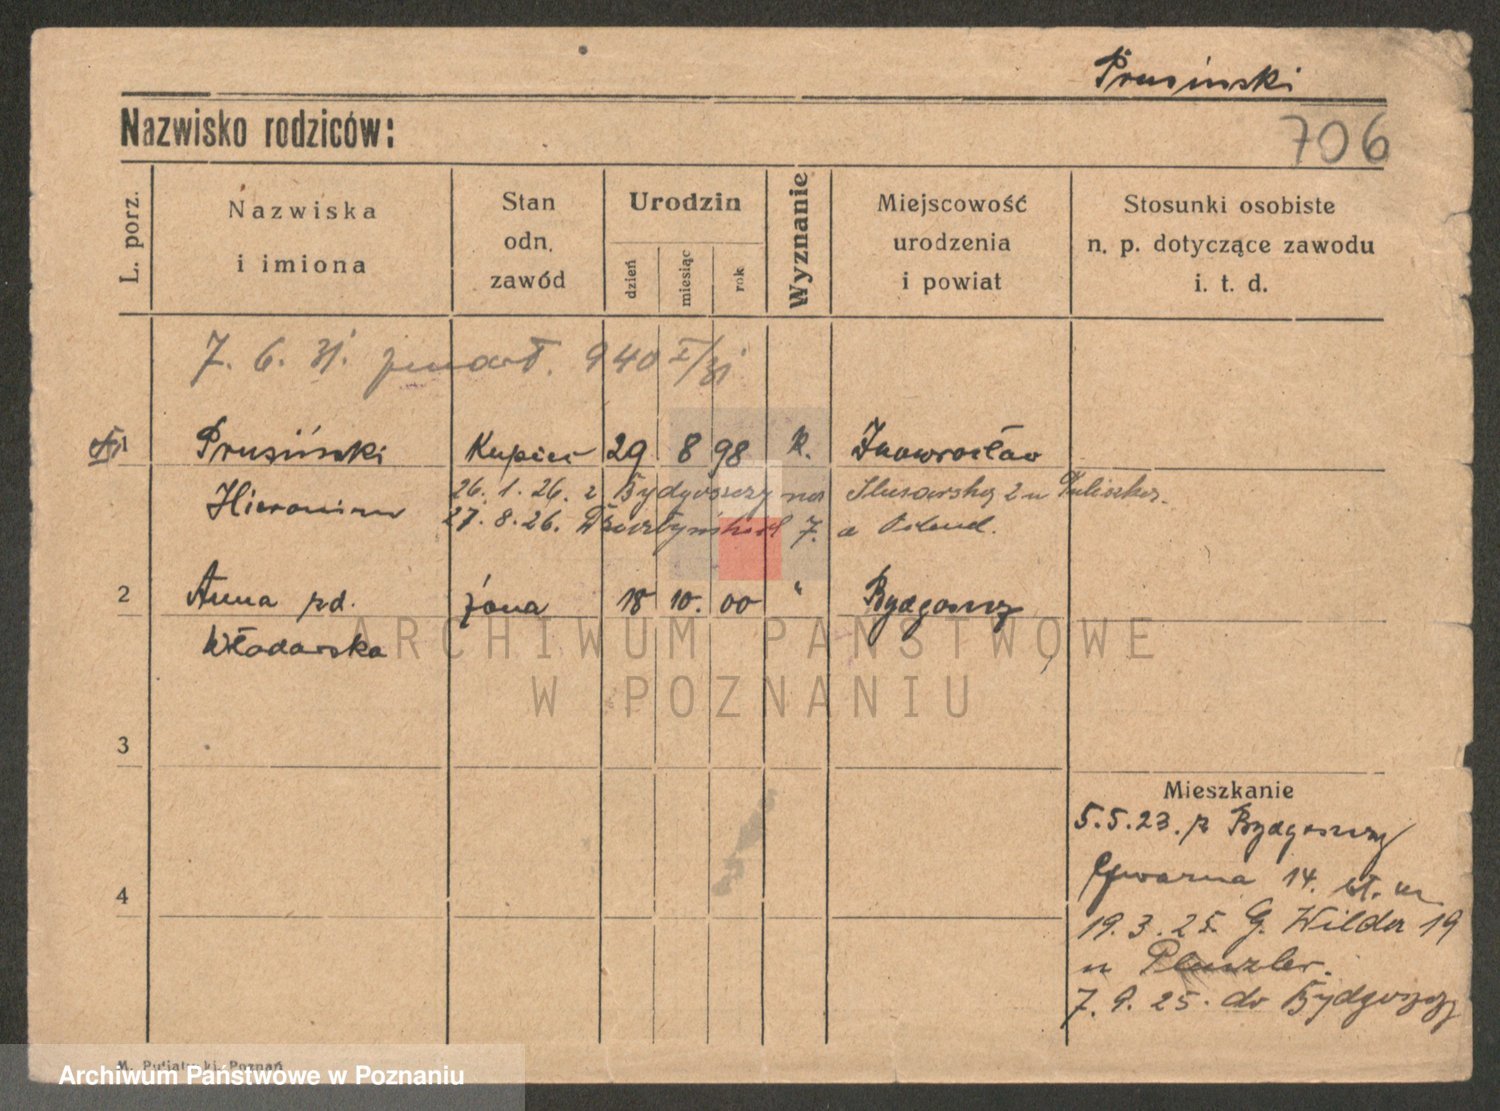 Prusinski
Nazwisko rodziców:
706
L. porz.
Nazwiska
i imiona
Stan
odn.
zawód
Urodzin
dzień
miesiąc
rok
Wyznanie
Miejscowość
urodzenia
i powiat
Stosunki osobiste
n. p. dotyczące zawodu
i. t. d.
7. 6. 31. 940 I/31
1 Prusiński Kupiec 29 8 98 R. Inowrocław
Hieronim 26. 1. 26. z Bydgoszczy na Ślusarską 2 u
27. 8. 26. 7. a
2 Anna zd. żona 18 10. 00 " Bydgoszcz
Włodarska
ARCHIWUM PAŃSTWOWE
W POZNANIU
3
4
Mieszkanie
5.5.23. z Bydgoszczy
14.
19. 3. 25. G. Wilda 19
u
7. 9. 25. do Bydgoszczy
M. Poznań
Archiwum Państwowe w Poznaniu